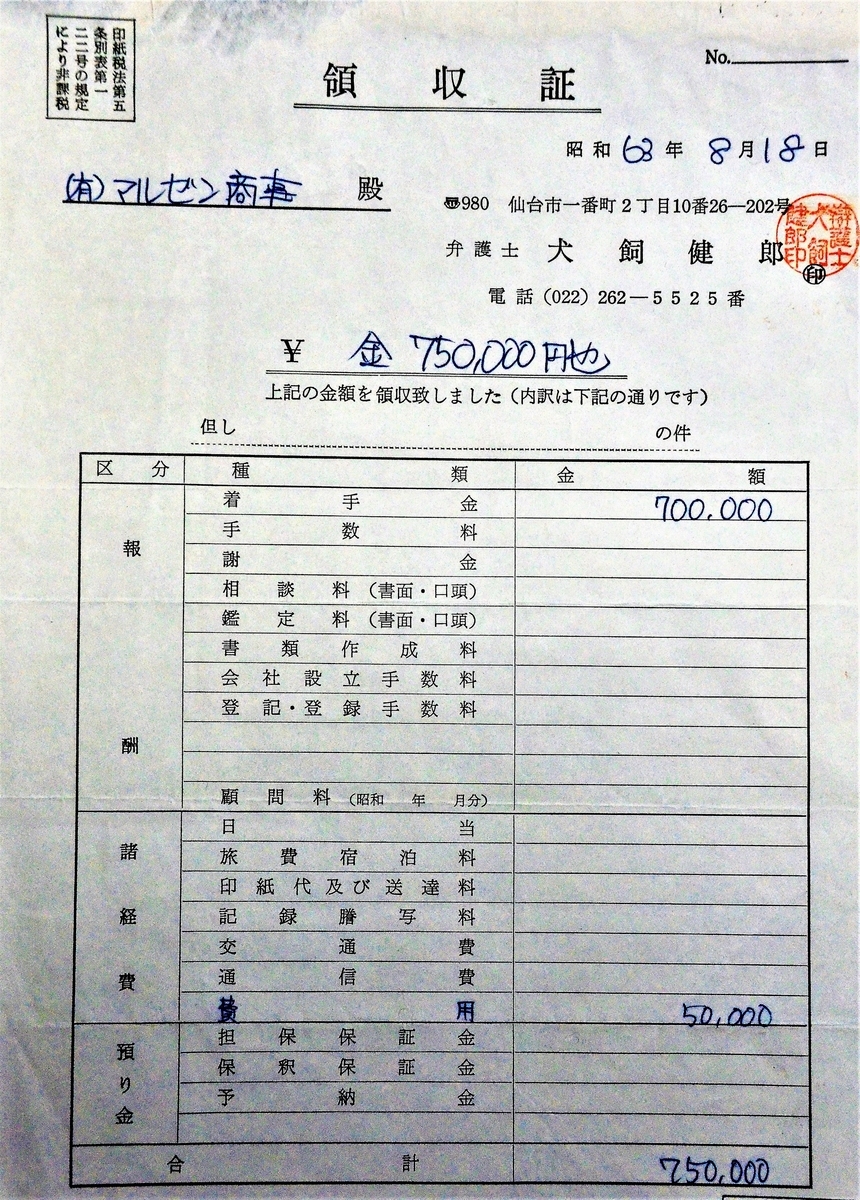 印紙税法第五
条別表第一
二二号の規定
により非課税
No.
領収証
昭和63年8月18日
(有)マルゼン商事 殿
〠980 仙台市一番町2丁目10番26―202号
弁護士 犬飼健郎 ㊞
辯護士
犬飼
健郎印
電話(022)262―5525番
¥ 金 750,000円也
上記の金額を領収致しました(内訳は下記の通りです)
但し の件
区分 種類 金額
報酬
着手金 700,000
手数料
謝金
相談料(書面・口頭)
鑑定料(書面・口頭)
書類作成料
会社設立手数料
登記・登録手数料
顧問料(昭和 年 月分)
諸経費
日当
旅費宿泊料
印紙代及び送達料
記録謄写料
交通費
通信費
費用 50,000
預り金
担保保証金
保釈保証金
予納金
合計 750,000